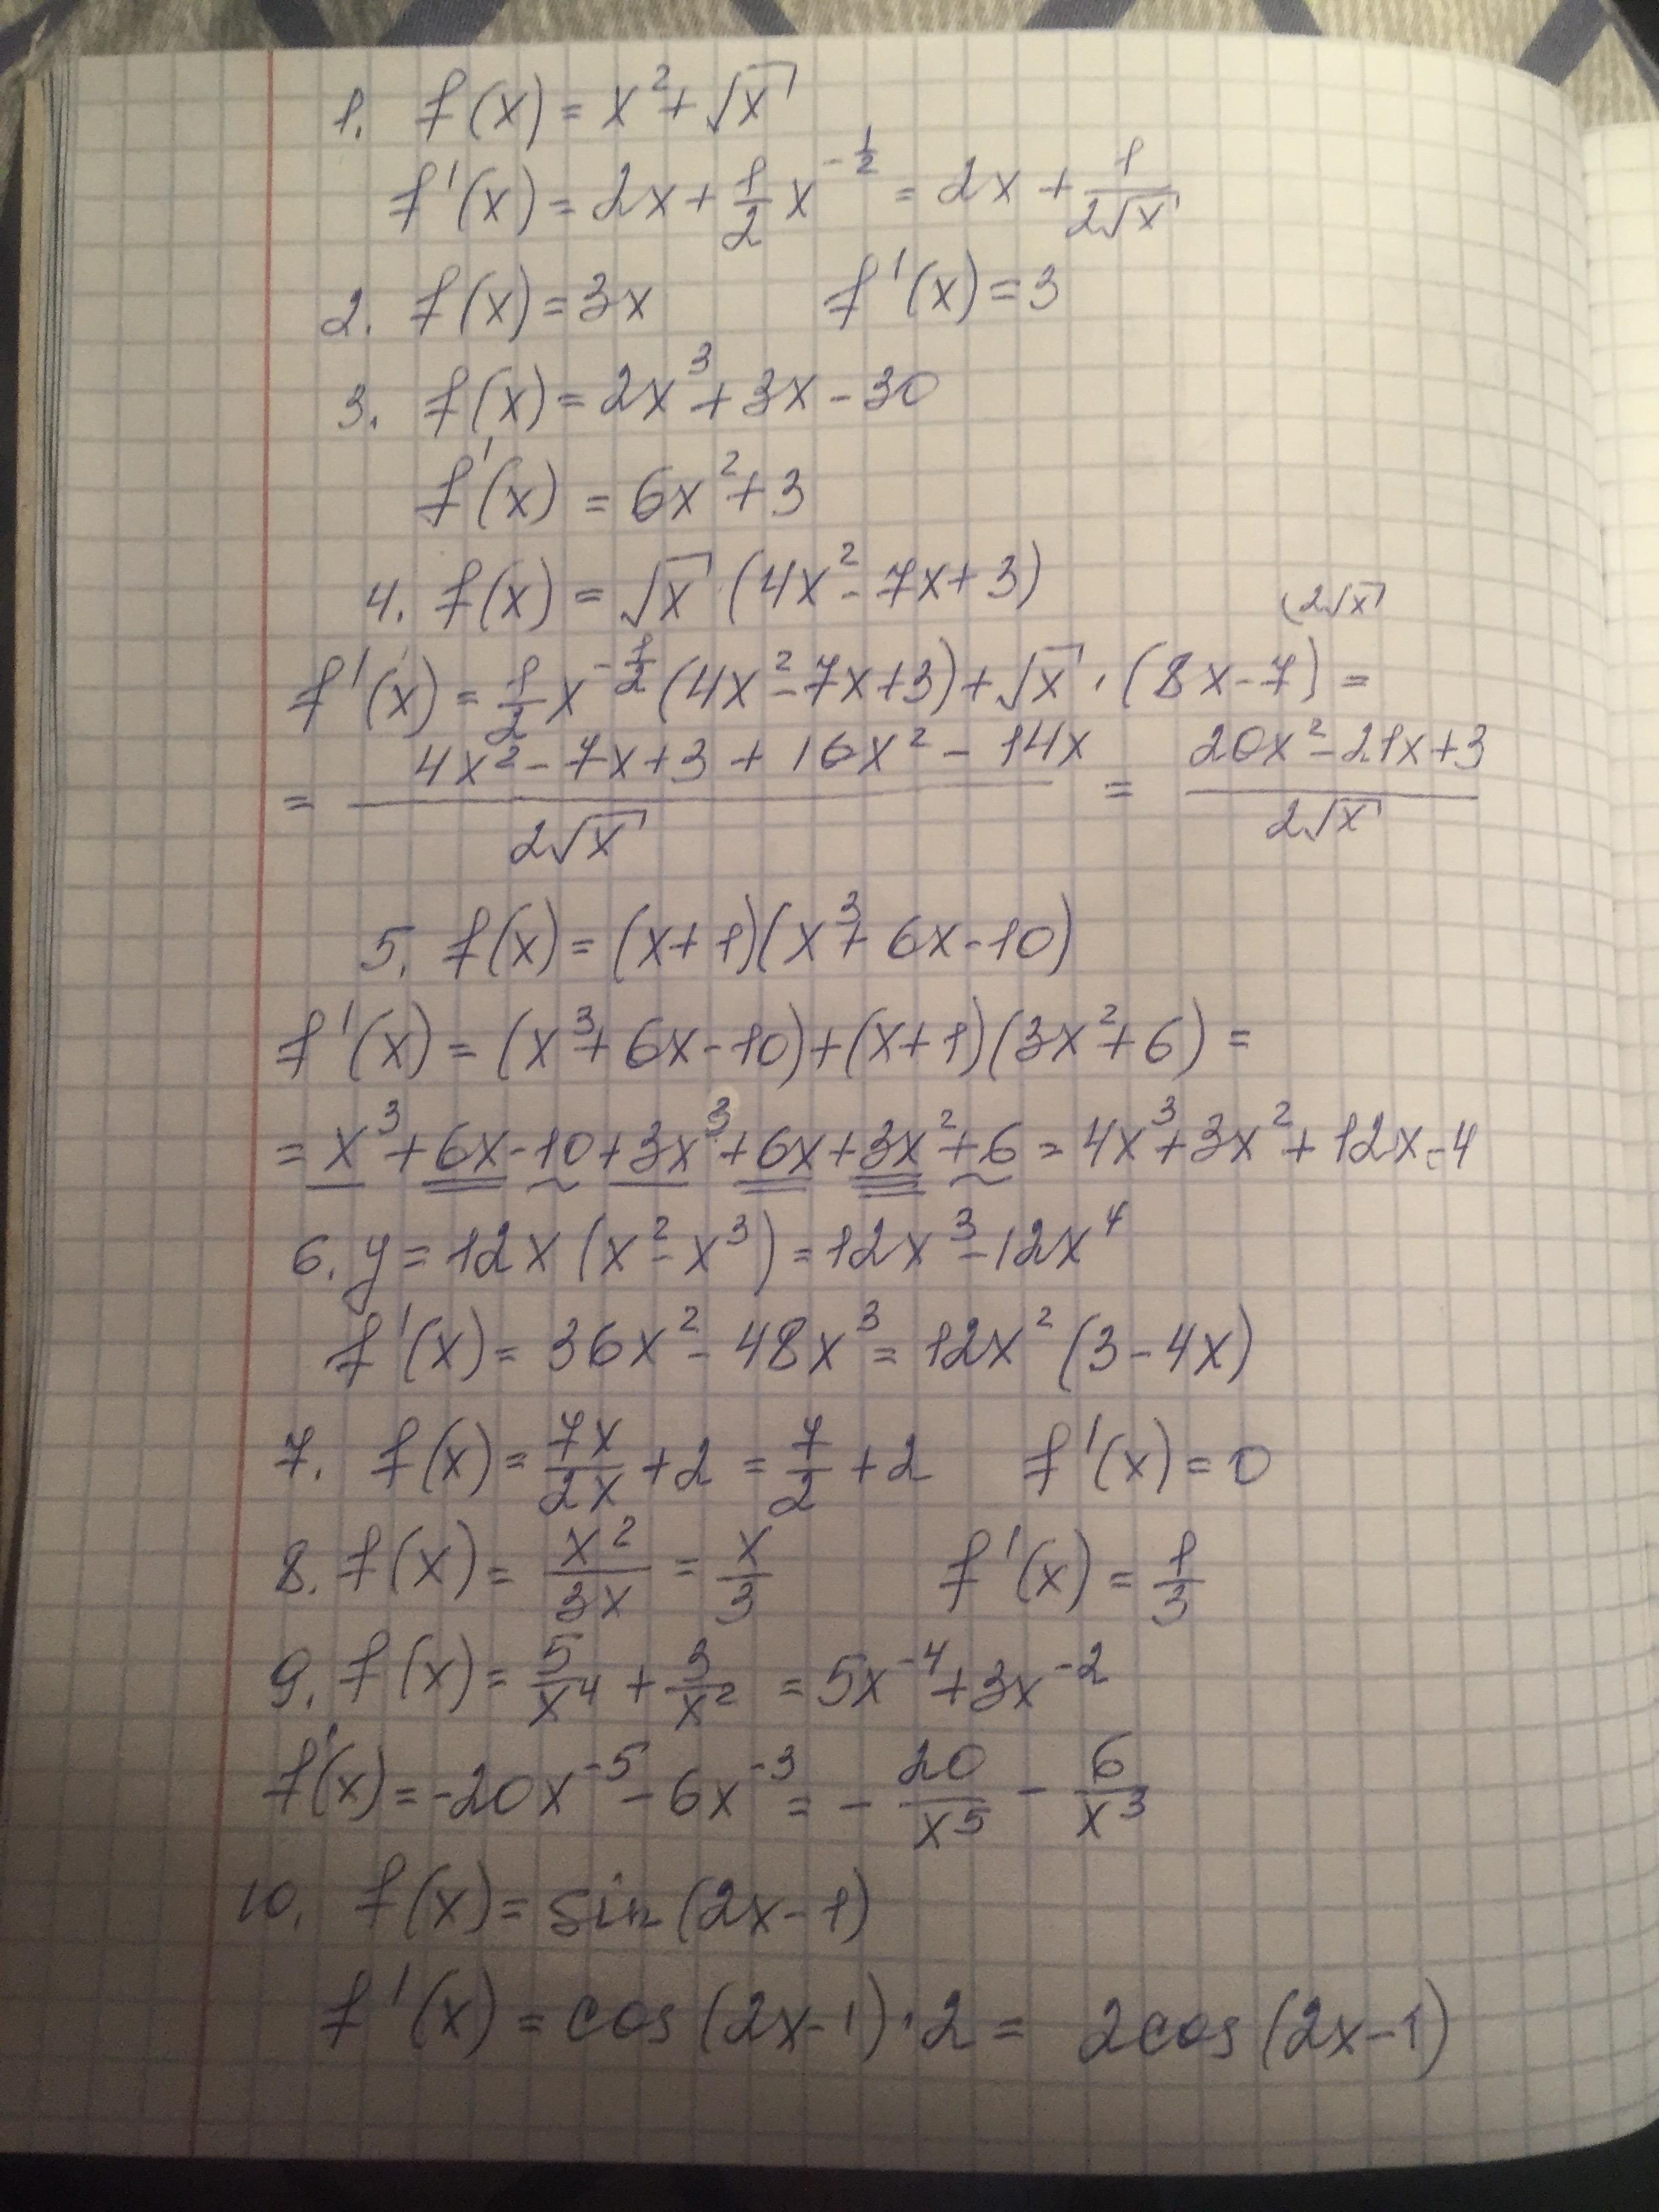 1. f(x) = x² + √x
f'(x) = 2x + 1/2 x^(-1/2) = 2x + 1/(2√x)
2. f(x) = 3x f'(x) = 3
3. f(x) = 2x³ + 3x - 30
f'(x) = 6x² + 3
4. f(x) = √x · (4x² - 7x + 3)
(2√x
f'(x) = 1/2 x^(-1/2) (4x² - 7x + 3) + √x · (8x - 7) =
= (4x² - 7x + 3 + 16x² - 14x)/(2√x) = (20x² - 21x + 3)/(2√x)
5. f(x) = (x + 1)(x³ + 6x - 10)
f'(x) = (x³ + 6x - 10) + (x + 1)(3x² + 6) =
= x³ + 6x - 10 + 3x³ + 6x + 3x² + 6 = 4x³ + 3x² + 12x - 4
6. y = 12x (x² - x³) = 12x³ - 12x⁴
f'(x) = 36x² - 48x³ = 12x² (3 - 4x)
7. f(x) = 7x/2x + 2 = 7/2 + 2 f'(x) = 0
8. f(x) = x²/3x = x/3 f'(x) = 1/3
9. f(x) = 5/x⁴ + 3/x² = 5x⁻⁴ + 3x⁻²
f'(x) = -20x⁻⁵ - 6x⁻³ = - 20/x⁵ - 6/x³
10. f(x) = sin(2x - 1)
f'(x) = cos(2x - 1) · 2 = 2cos(2x - 1)